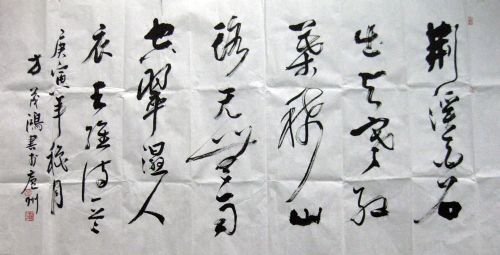 荆溪白石
出天寒红
葉稀山
路元無雨
空翠湿人
衣王维诗一首
庚寅年秋月
方茂鴻書于庐州